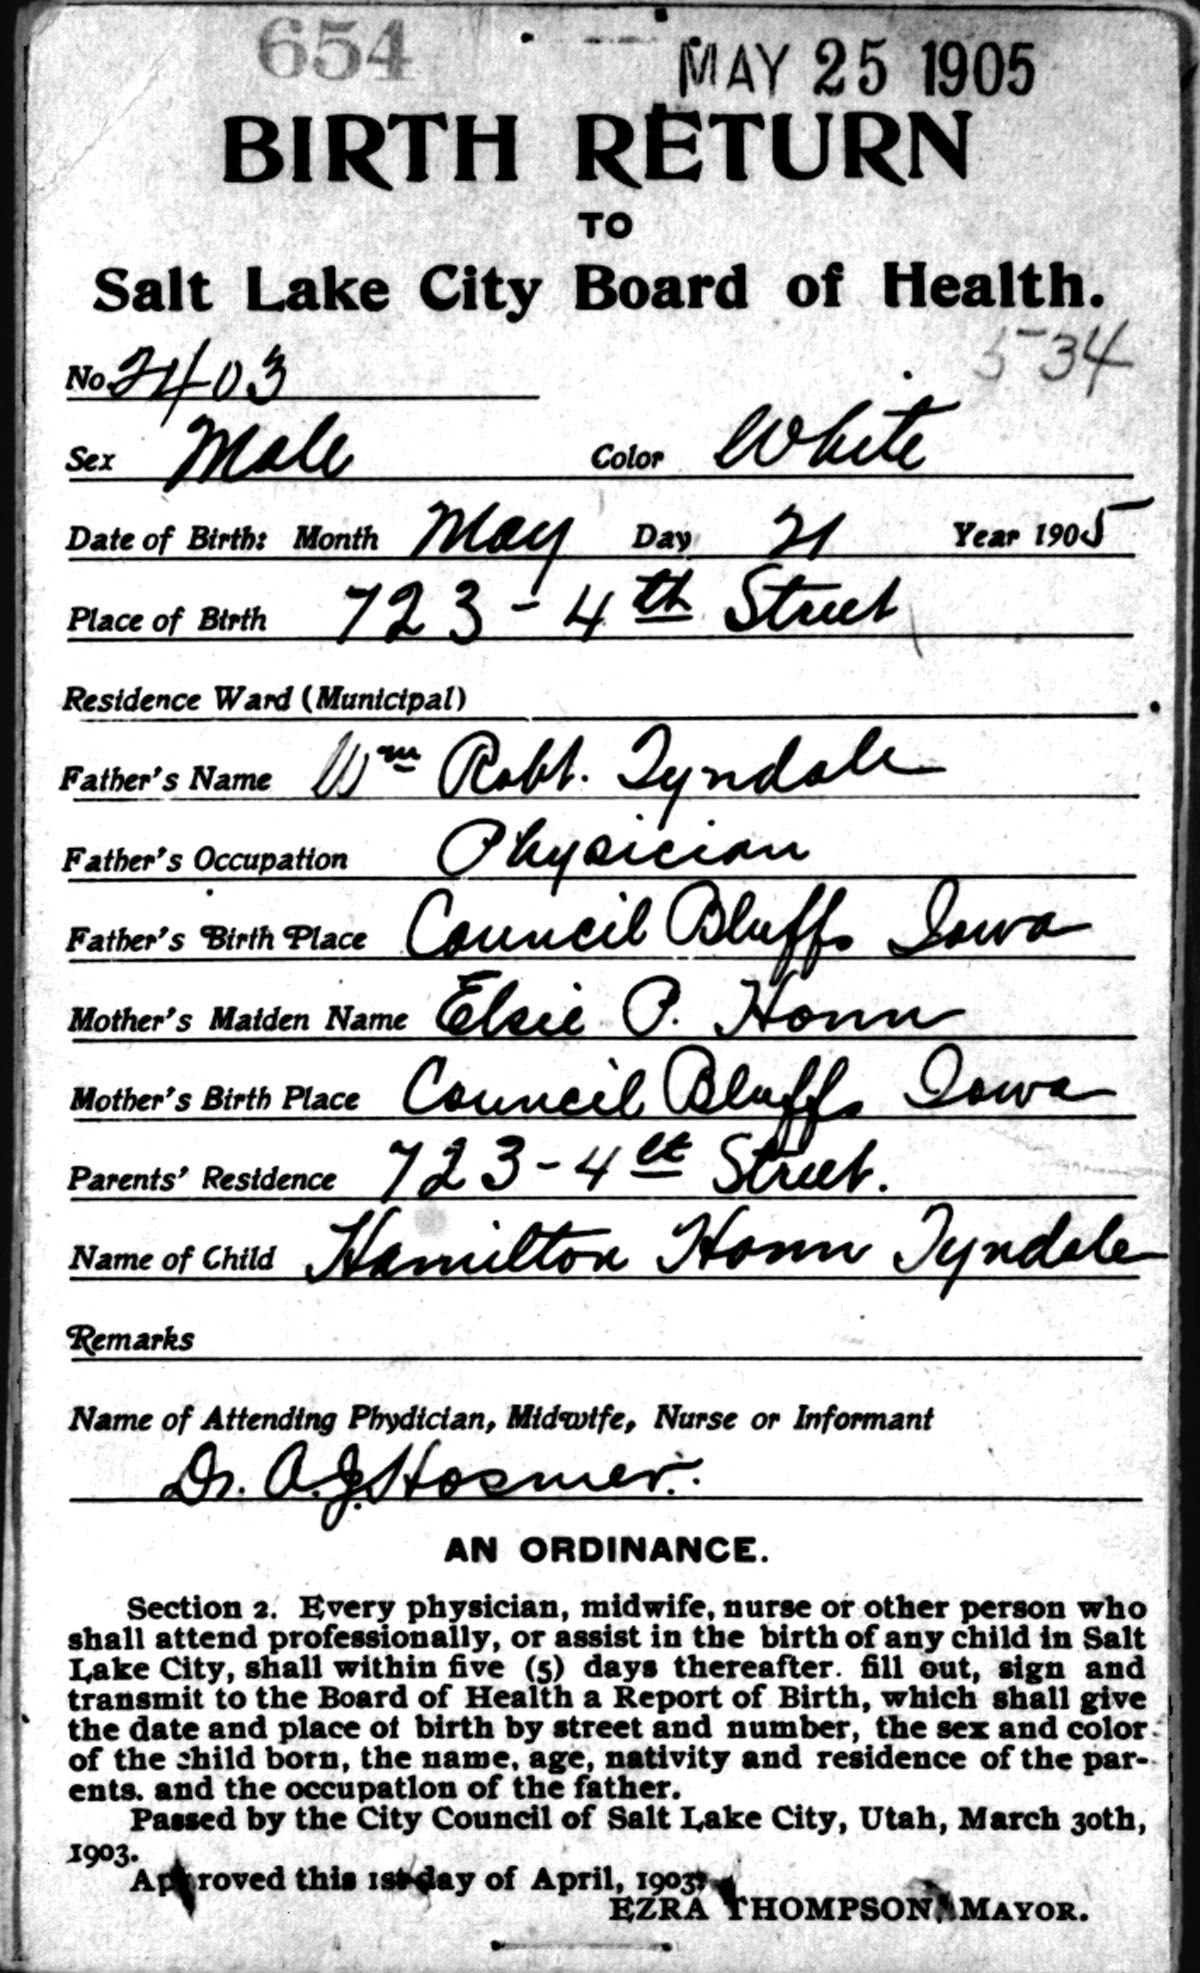 654 MAY 25 1905
BIRTH RETURN
TO
Salt Lake City Board of Health.
534
No. 2403
Sex Male Color White
Date of Birth: Month May Day 21 Year 1905
Place of Birth 723 - 4th Street
Residence Ward (Municipal)
Father's Name Wm Robt. Tyndale
Father's Occupation Physician
Father's Birth Place Council Bluffs Iowa
Mother's Maiden Name Elsie P. Honn
Mother's Birth Place Council Bluffs Iowa
Parents' Residence 723 - 4th Street.
Name of Child Hamilton Honn Tyndale
Remarks
Name of Attending Phydician, Midwife, Nurse or Informant
Dr. A. J. Hosmer.
AN ORDINANCE.
Section 2. Every physician, midwife, nurse or other person who
shall attend professionally, or assist in the birth of any child in Salt
Lake City, shall within five (5) days thereafter. fill out, sign and
transmit to the Board of Health a Report of Birth, which shall give
the date and place of birth by street and number, the sex and color
of the child born, the name, age, nativity and residence of the par-
ents. and the occupation of the father.
Passed by the City Council of Salt Lake City, Utah, March 30th,
1903.
Approved this 1st day of April, 1903.
EZRA THOMPSON, MAYOR.